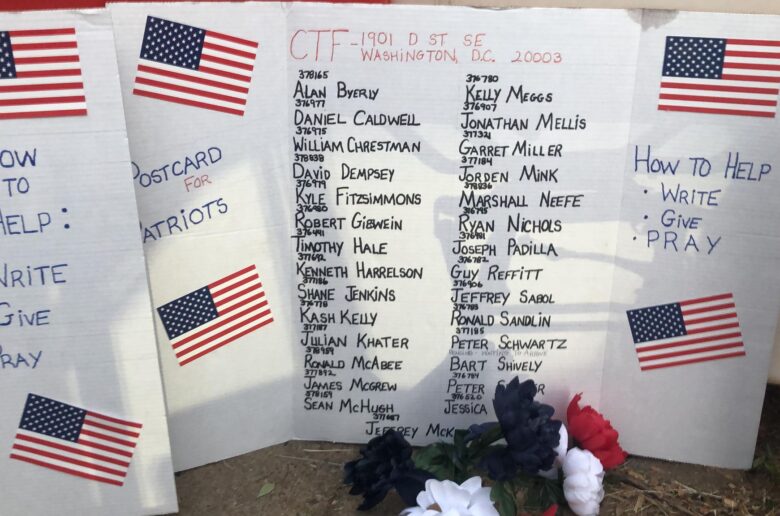 HOW
TO
HELP:
WRITE
GIVE
PRAY
POSTCARD
FOR
PATRIOTS
CTF - 1901 D ST SE
WASHINGTON, D.C. 20003
378165
ALAN BYERLY
376977
DANIEL CALDWELL
376975
WILLIAM CHRESTMAN
378838
DAVID DEMPSEY
376979
KYLE FITZSIMMONS
376980
ROBERT GIBWEIN
376441
TIMOTHY HALE
377692
KENNETH HARRELSON
377186
SHANE JENKINS
376778
KASH KELLY
377187
JULIAN KHATER
378959
RONALD MCABEE
377892
JAMES MCGREW
378159
SEAN MCHUGH
377687
JEFFREY MCK
376780
KELLY MEGGS
376907
JONATHAN MELLIS
377321
GARRET MILLER
377184
JORDEN MINK
378836
MARSHALL NEEFE
376795
RYAN NICHOLS
376981
JOSEPH PADILLA
376782
GUY REFFITT
376906
JEFFREY SABOL
376783
RONALD SANDLIN
377185
PETER SCHWARTZ
BART SHIVELY
376784
PETER
376520
JESSICA
HOW TO HELP
· WRITE
· GIVE
· PRAY